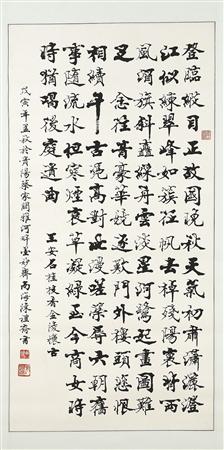 登臨縱目正故國秋天氣初肅瀟灑澄
江似練翠峰如簇征帆去棹殘陽裏背西
風酒旗斜矗綵舟雲淡星河鷺起畫圖難
足念往昔豪華競逐嘆門外樓頭悲恨
相續千古憑高對此漫嗟榮辱六朝舊
事隨流水但寒煙衰草凝綠至今商女時
時猶唱後庭遺曲
王安石桂枝香金陵懷古
戊寅年孟秋於貴陽